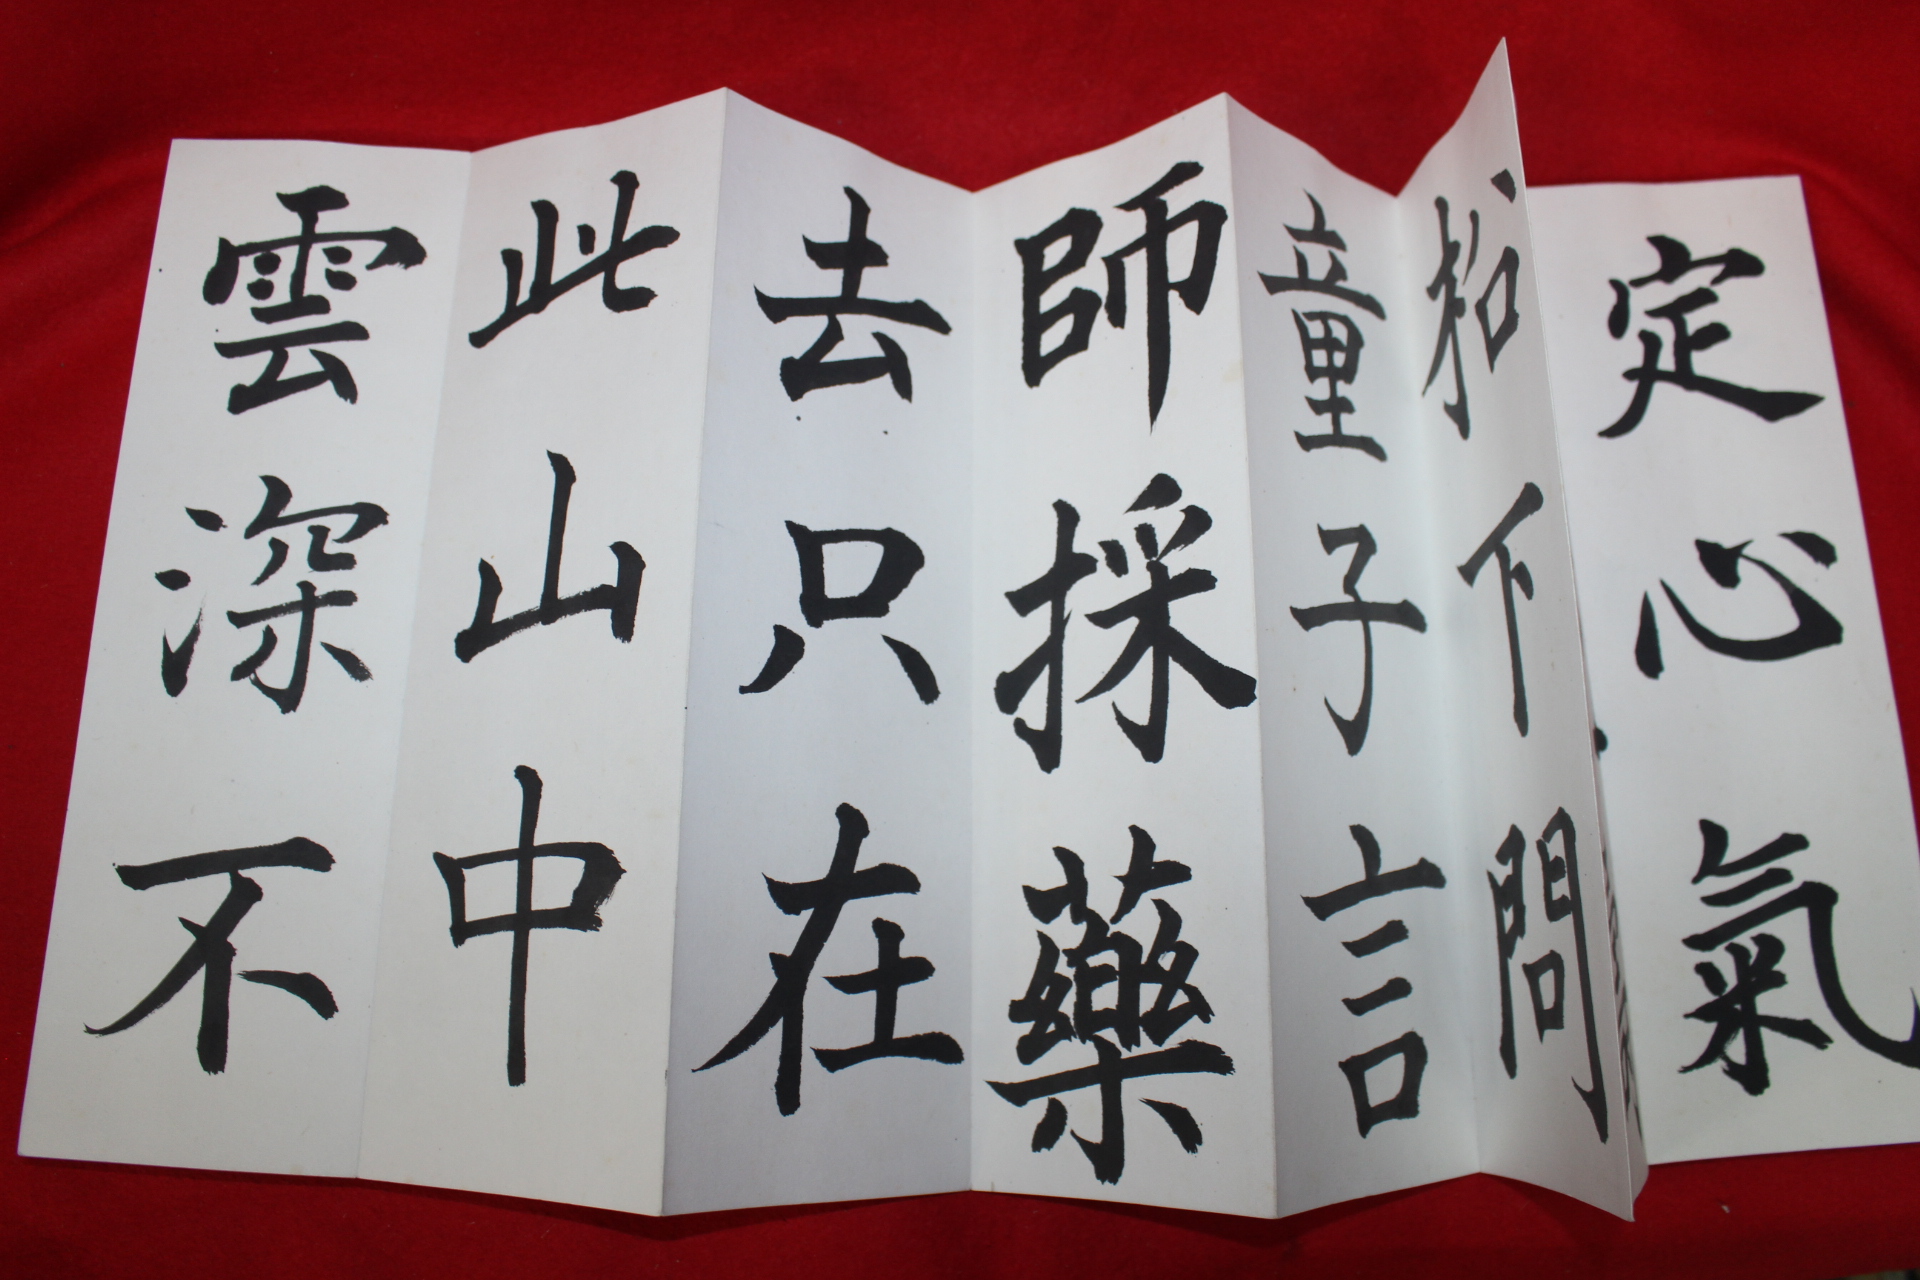 定心氣
松下問
童子言
師採藥
去只在
此山中
雲深不